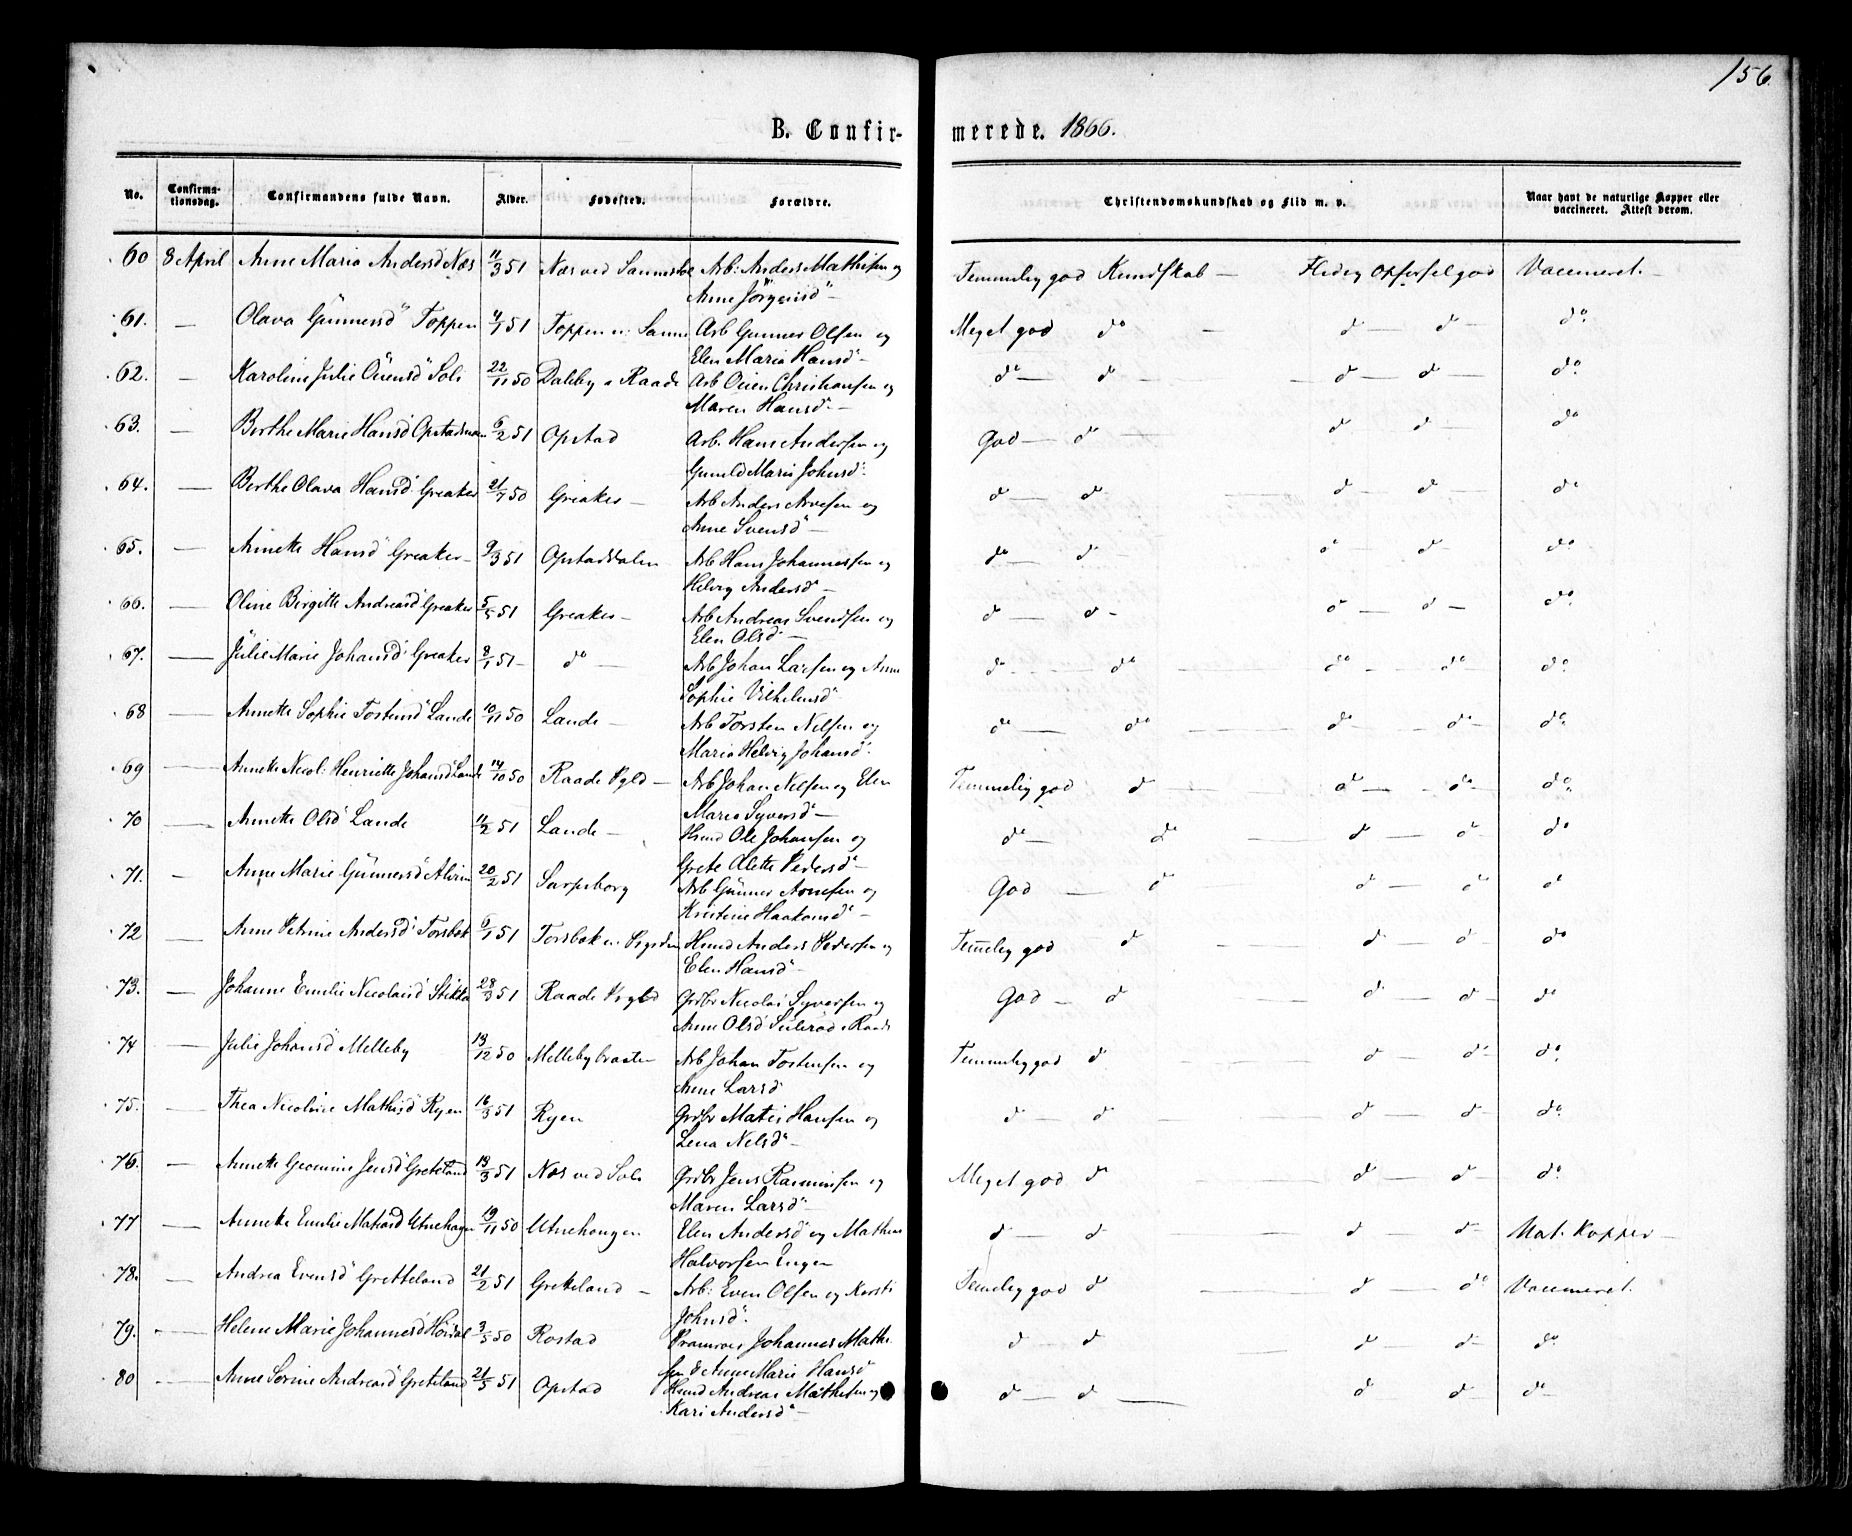 156.
B. Confirmerede. 1866.
No. Confirmationsdag. Confirmandens fulde Navn. Alder. Fødested. Forældre. Christendomskundskab og Flid m. v. Naar havt de naturlige Kopper eller vaccineret. Attest derom.
60 8 April Anne Maria Andersd Næs 11/3 51 Næs ved Sannesbol Arb: Anders Mathisen og
Anne Jörgensd Temmelig god Kundskab — Flidig Opførsel god Vaccineret —
61. — Olava Gunnersd Toppen 4/1 51 Toppen u: Sanne Arb Gunner Olsen og
Elen Maria Hansd — Meget god do — d — d — do
62. — Karoline Julie Ovensd Soli 22/11 50 Daleby i Raade Arb Oven Christiansen og
Maren Hansd — do — d — d — d — do
63. — Berthe Marie Hansd Opstad 6/2 51 Opstad Arb. Hans Andersen og
Gunild Marie Johnsd God — d — d — d — do
64. — Berthe Olava Hansd Greaker 21/7 50 Greaker — Arb Anders Arvesen og
Anne Svensd — d — d — d — d — do
65. — Annette Hansd Greaker — 9/3 51 Opstaddalen Arb Hans Johannessen og
Helvig Andersd — do — d — d — d — do
66. — Oline Birgitte Andreasd Greaker 5/5 51 Greaker — Arb Andreas Svendsen og
Elen Olsd — d — d — d — d — do
67. — Julie Marie Johansd Greaker 8/1 51 — do — Arb Johan Larsen og Anne
Sophie Vilhelmsd d — do — do — do do
68 — Annette Sophie Tostensd Lande 10/11 50 Lande — Arb Torsten Nilsen og
Maria Helvig Johansd do — do — do — do — do
69 — Annette Nicol: Henriette Johansd Lande 14/10 50 Raade Pgld — Arb Johan Nilsen og Elen
Maria Syversd — Temmelig god d — d — do — do
70 — Annette Olsd Lande 11/2 51 Lande — Husmd Ole Johansen og
Grete Olette Pedersd — do — do — do — d — do
71. — Anne Marie Gunnersd Alvim 20/2 51 Sarpsborg Arb Gunner Arvesen og
Kristine Haakonsd — God — d — d — d d
72 — Anne Petrine Andersd Torsbek 6/1 51 Torsbek Husmd Anders Pedersen og
Elen Hansd — Temelig god d — d — d — do
73. — Johanne Emilie Nicolaisd 28/3 51 Raade Pgld Grdbr Nicolai Syversen og
Anne Olsd i Raade God — d — d — d — do
74 — Julie Johansd Melleby 13/12 50 Mellebybraaten Arb Johan Tostensen og
Anne Larsd Temmelig god d — d — d — do
75. — Thea Nicoline Mathisd Ryen 16/3 51 Ryen Grdbr Matis Hansen og
Lena Nilsd — d — d — d — d — do
76. — Annette Jensd Greteland 13/3 51 Næs ved Soli Grdbr Jens Rasmussen og
Maren Larsd Meget god d — d — d — do
77 — Annette Emilie 19/11 50 Utnehougen Elen Andersd og Mathias
Halvorsen Engen d — d — d — d — Nat. Kopper —
78. — Andrea Evensd Gretteland 21/2 51 Greteland — Arb: Even Olsen og Kersti
Johnsd Temelig god d — d — do — Vaccineret.
79. — Helene Marie Johannesd 3/5 50 Rostad Johannes Mathi-
sen & Anne Marie Hansd d — d — d — d — do
80 — Anne Sorine Andreasd Greteland 21/5 51 Opstad Husmd Andreas Mathisen og
Kari Andersd — d — d — d — d — do